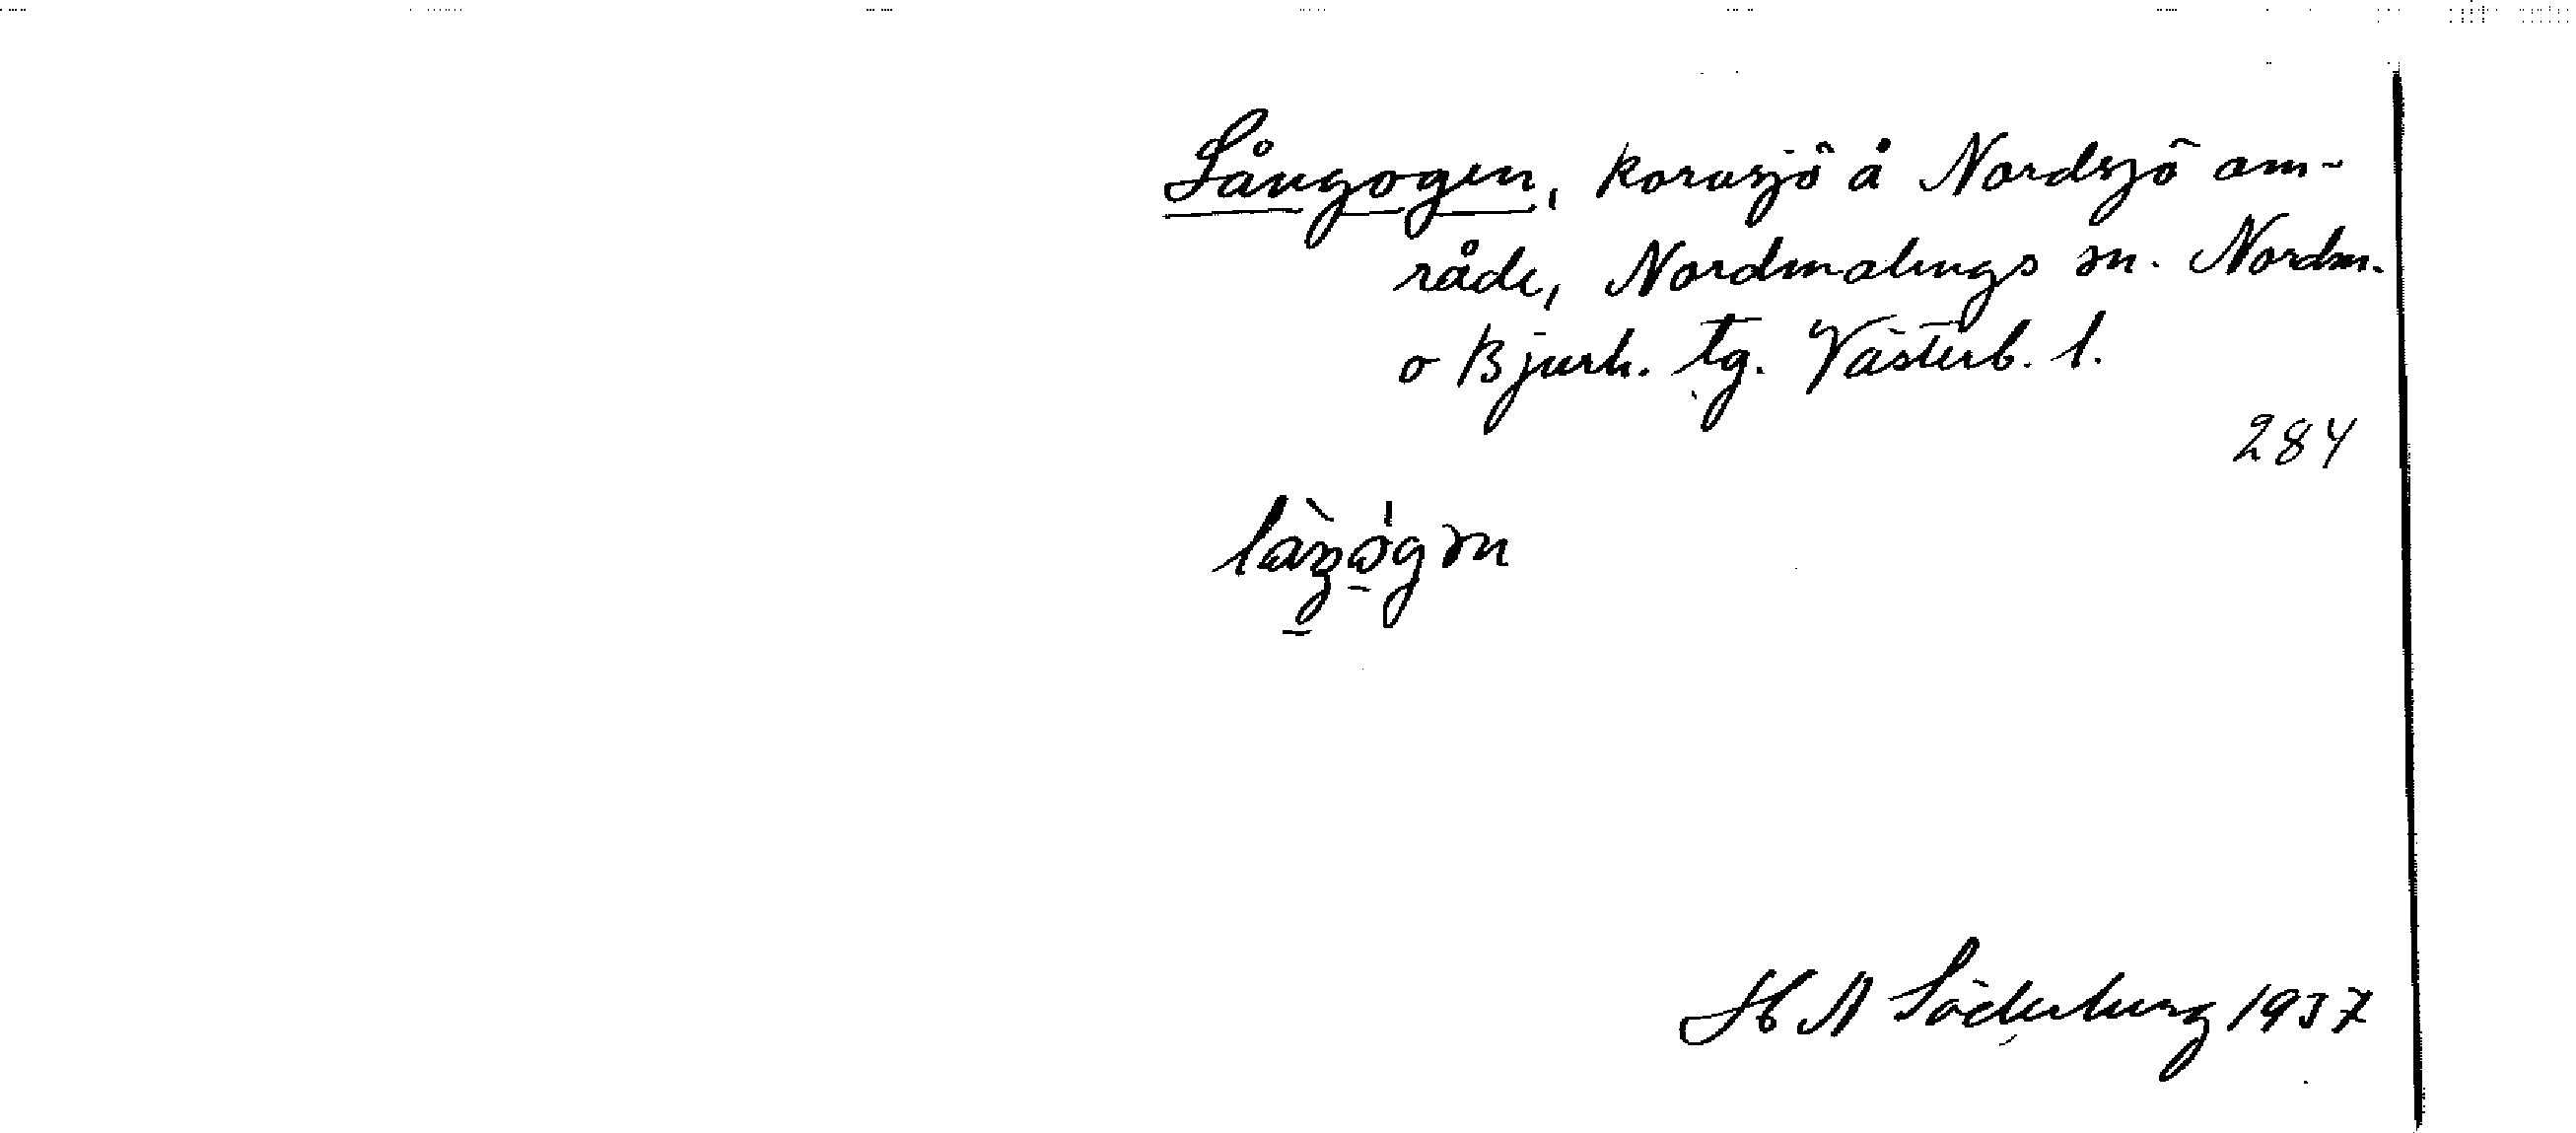 Långogen, korvsjö å Nordsjö om-
råde, Nordmalings sn. Nordm.
o Bjurh. tg. Västerb. l.
284
H N Söderberg 1937